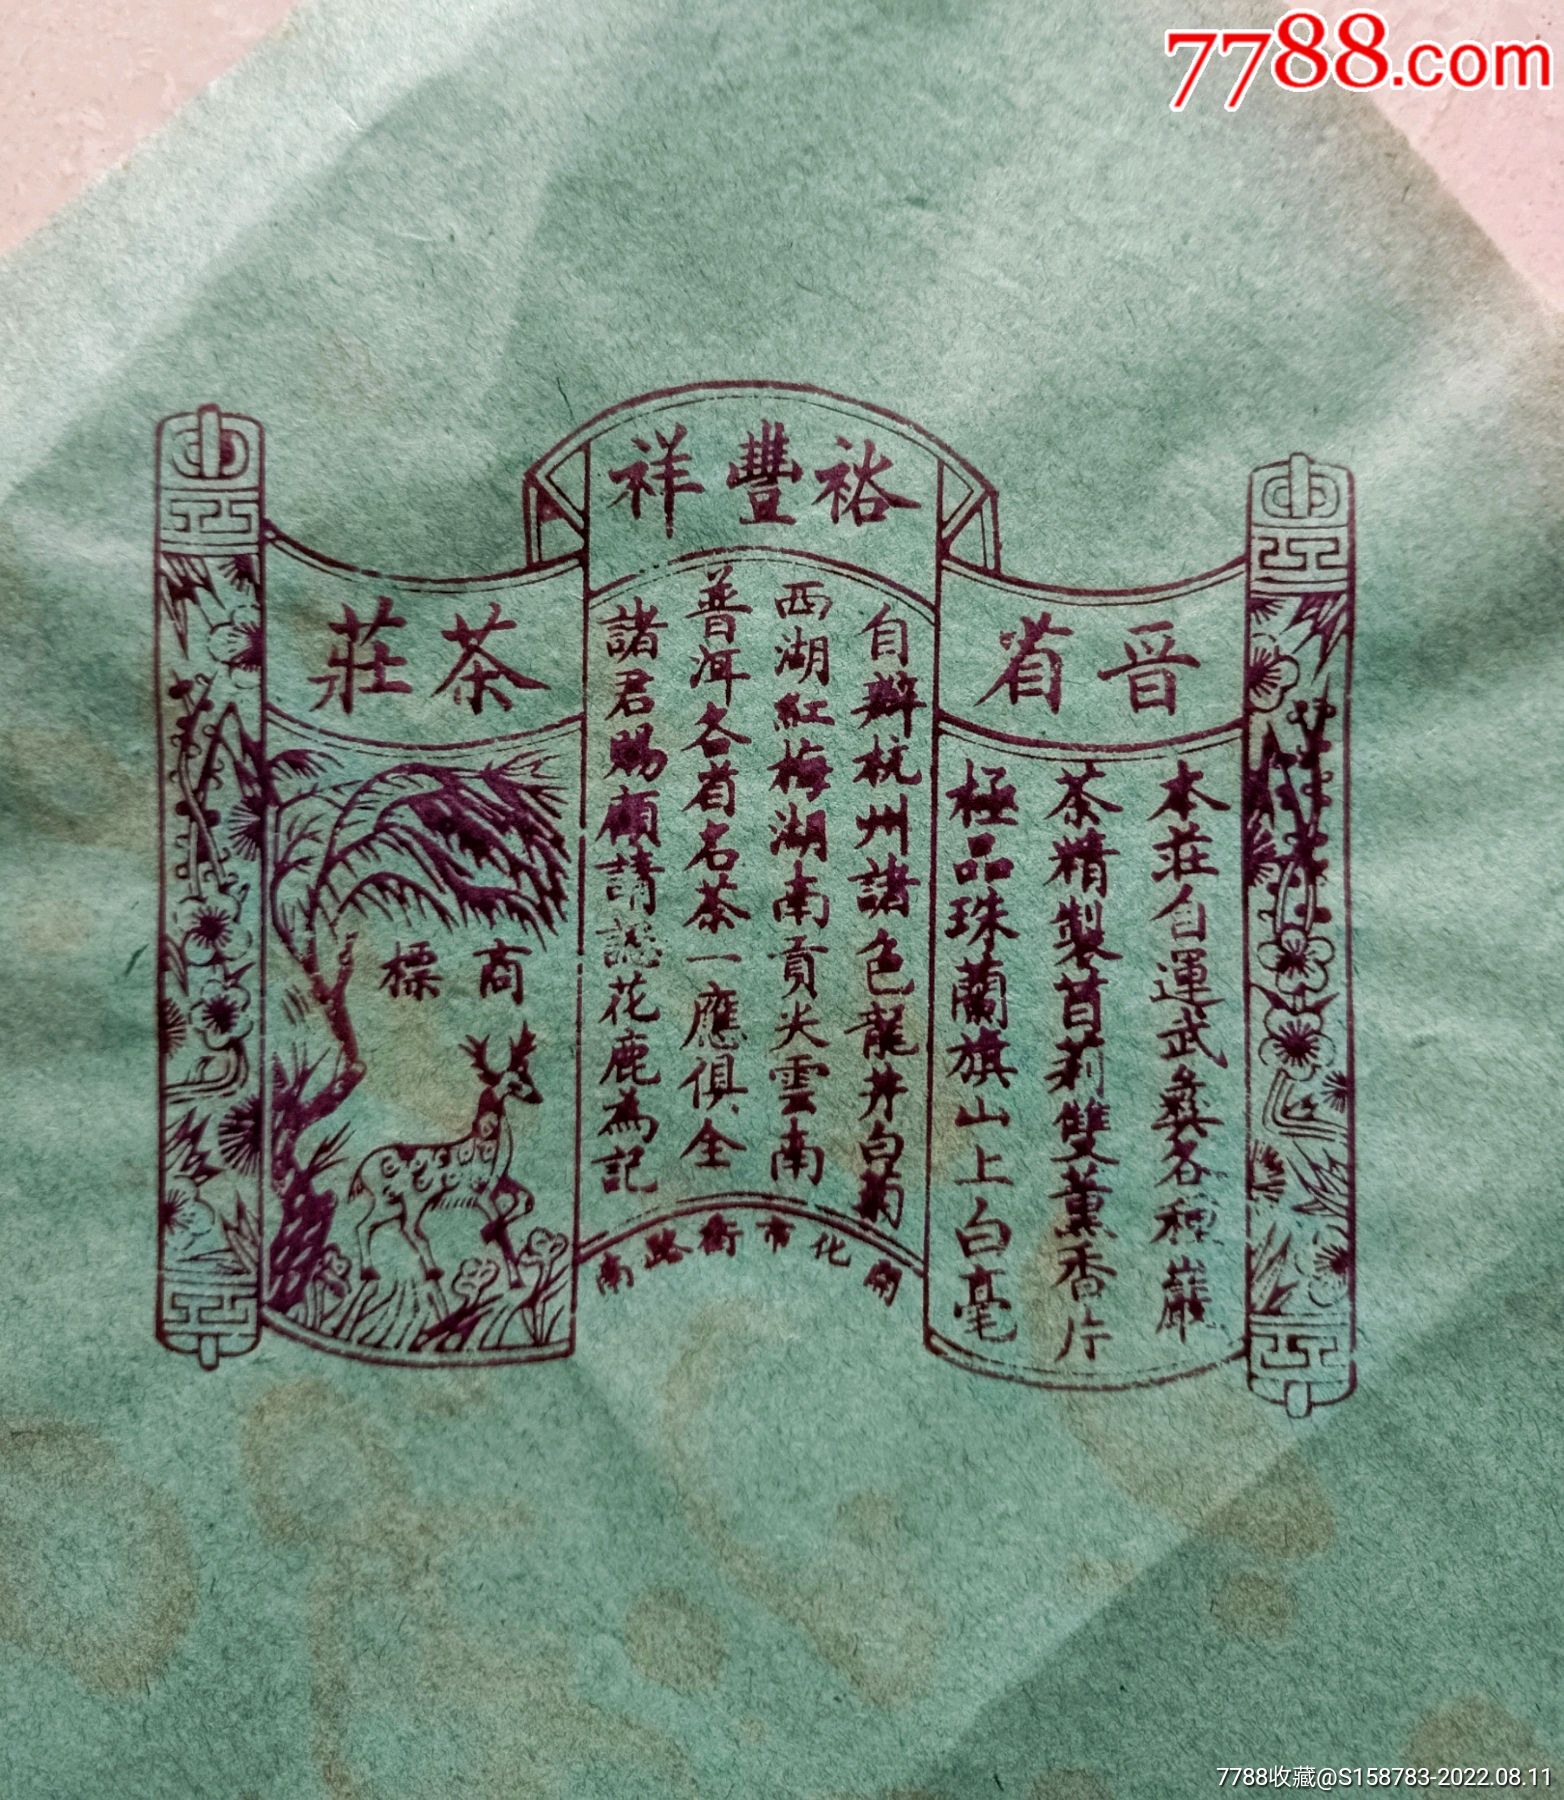 7788.com
晋省
裕豐祥
茶莊
本莊自運武彝各種巖
茶精製苜莉雙薰香片
極品珠蘭旗山上白毫
自辦杭州諸色龍井白菊
西湖紅梅湖南貢尖雲南
普洱各省名茶一應俱全
諸君賜顧請認花鹿為記
商標
開化市街路南
7788收藏@S158783-2022.08.11